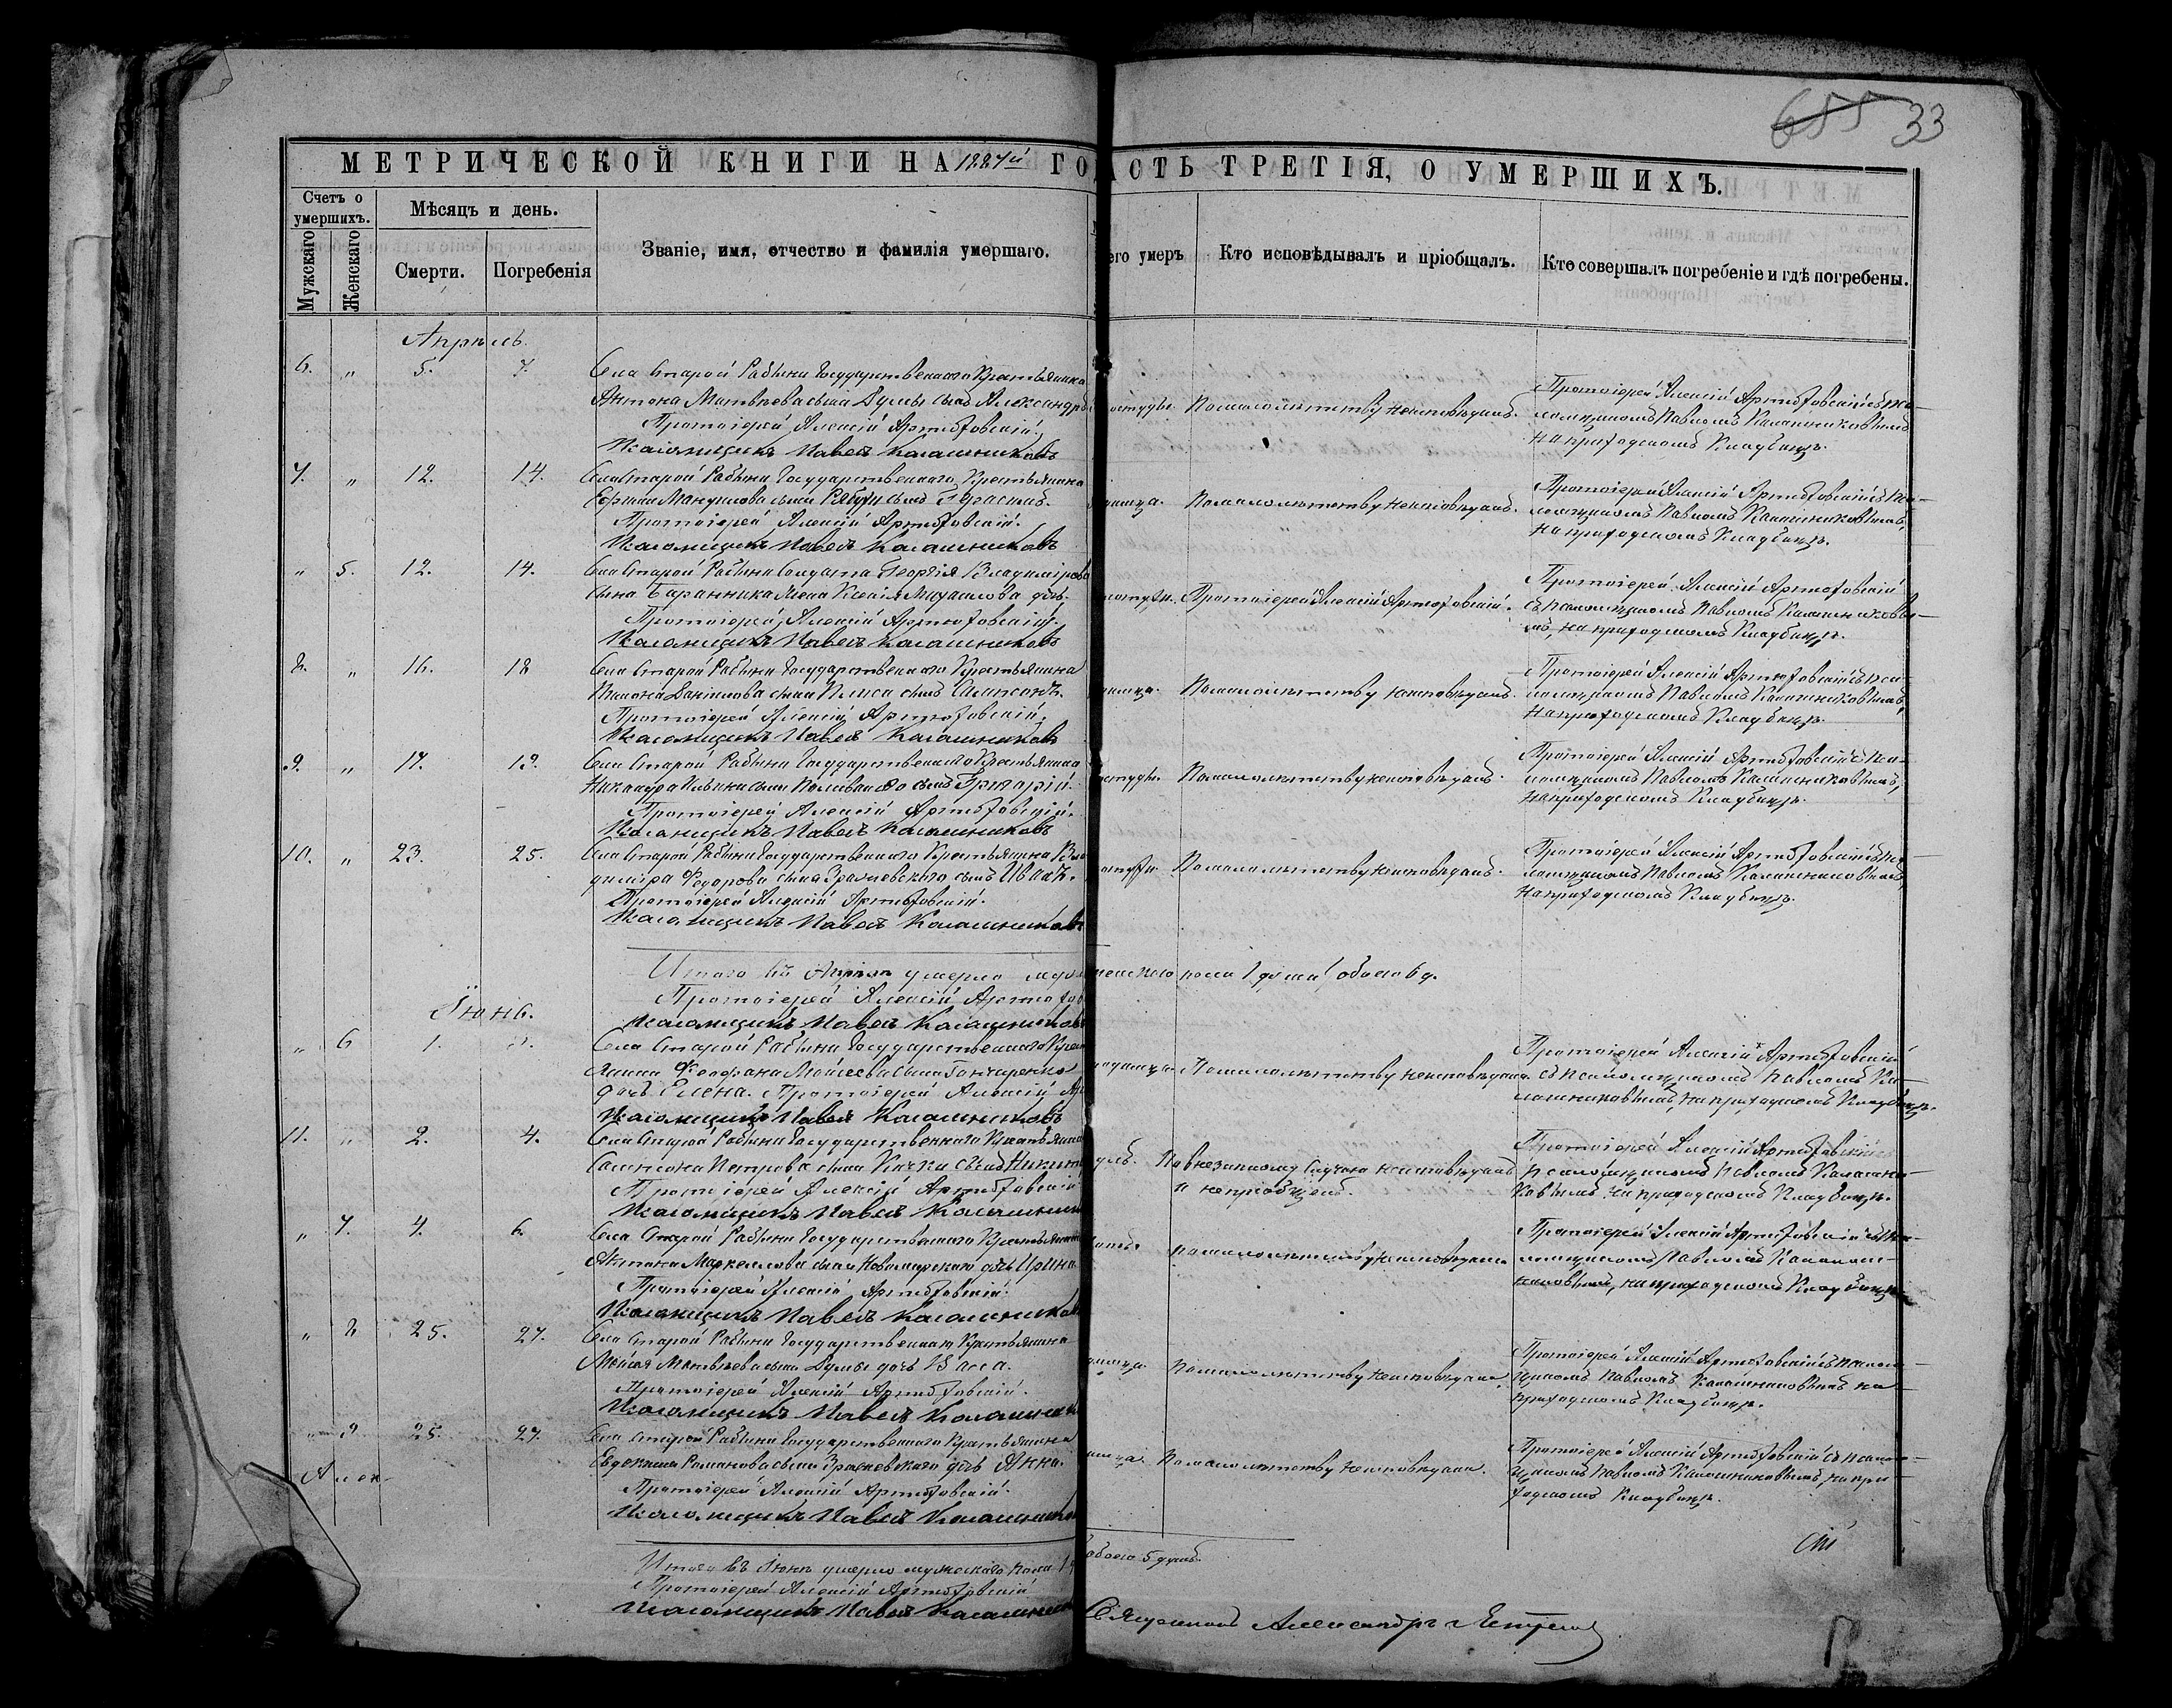 655 33
МЕТРИЧЕСКОЙ КНИГИ НА 1887й ГО
АСТЬ ТРЕТІЯ, О УМЕРШИХЪ.
Счетъ о умершихъ.
Мужскаго
Женскаго
Мѣсяцъ и день.
Смерти.
Погребенія
Званіе, имя, отчество и фамилія умершаго.
его умеръ
Кто исповѣдывалъ и пріобщалъ.
Кто совершалъ погребеніе и гдѣ погребены.
Апрѣль.
6. „ 5. 7. Села Старой Рабыни Государственнаго Крестьянина
Антона Матвѣева сына Думы сынъ Александръ
остуды По малолѣтству неисповѣданъ.
Протоіерей Алексій Артюховскій
Псаломщикъ Павелъ Калашниковъ
Протоіерей Алексій Артюховскій съ Пса-
ломщикомъ Павломъ Калашниковымъ
на приходскомъ Кладбищѣ.
7. „ 12. 14. Села Старой Рабыни Государственнаго Крестьянина
сынъ Герасимъ.
По малолѣтству неисповѣданъ.
Протоіерей Алексій Артюховскій.
Псаломщикъ Павелъ Калашниковъ
Протоіерей Алексій Артюховскій съ Пса-
ломщикомъ Павломъ Калашниковымъ,
на приходскомъ Кладбищѣ.
„ 5. 12. 14. Села Старой Рабыни Солдата Георгія Владимірова
сына Баранника жена Ксенія Михайлова
Протоіерей Алексій Артюховскій.
Протоіерей Алексій Артюховскій.
Псаломщикъ Павелъ Калашниковъ
Протоіерей Алексій Артюховскій
съ псаломщикомъ Павломъ Калашниковы-
мъ, на приходскомъ Кладбищѣ.
8. „ 16. 18 Села Старой Рабыни Государственнаго Крестьянина
Данілова сына сынъ Сампсонъ.
По малолѣтству неисповѣданъ.
Протоіерей Алексій Артюховскій.
Псаломщикъ Павелъ Калашниковъ
Протоіерей Алексій Артюховскій съ пса-
ломщикомъ Павломъ Калашниковымъ,
на приходскомъ Кладбищѣ.
9. „ 17. 19. Села Старой Рабыни Государственнаго Крестьянина
Никандра Ильина сына сынъ Григорій.
По малолѣтству неисповѣданъ.
Протоіерей Алексій Артюховскій.
Псаломщикъ Павелъ Калашниковъ
Протоіерей Алексій Артюховскій съ Пса-
ломщикомъ Павломъ Калашниковымъ,
на приходскомъ Кладбищѣ.
10. „ 23. 25. Села Старой Рабыни Государственнаго Крестьянина Вла
диміра Федорова сына Зраневскаго сынъ Иванъ.
По малолѣтству неисповѣданъ.
Протоіерей Алексій Артюховскій.
Псаломщикъ Павелъ Калашниковъ
Протоіерей Алексій Артюховскій съ Пса-
ломщикомъ Павломъ Калашниковымъ,
на приходскомъ Кладбищѣ.
Итого въ Апрѣлѣ умерло муж
женскаго пола 1 душа обоего 6 д.
Протоіерей Алексій Артюхов
Псаломщикъ Павелъ Калашников
Іюнь.
„ 6 1. 3. Села Старой Рабыни Государственнаго Крест
янина Феофана Моисеева сына Гончаренко
дочь Елена. Протоіерей Алексій Ар
По малолѣтству неисповѣдана
Псаломщикъ Павелъ Калашниковъ
Протоіерей Алексій Артюховскій
съ псаломщикомъ Павломъ Ка-
лашниковымъ, на приходскомъ Кладбищѣ.
11. „ 2. 4. Села Старой Рабыни Государственнаго Крестьянина
Сампсона Петрова сына сынъ Никит
По внезапному случаю неисповѣданъ
и непріобщенъ.
Протоіерей Алексій Артюховскій
Псаломщикъ Павелъ Калашник
Протоіерей Алексій Артюховскій
псаломщикомъ Павломъ Калашни-
ковымъ на приходскомъ Кладбищѣ.
„ 7. 4. 6. Села Старой Рабыни Государственнаго Крестьянина
Антона Маркеллова сына дочь Ирина
По малолѣтству неисповѣдана
Протоіерей Алексій Артюховскій.
Псаломщикъ Павелъ Калашников
Протоіерей Алексій Артюховскій съ Пса-
ломщикомъ Павломъ Калаш-
никовымъ, на приходскомъ Кладбищѣ
„ 8 25. 27. Села Старой Рабыни Государственнаго Крестьянина
Моисея Матвѣева сына Думы дочь Васса.
По малолѣтству неисповѣдана.
Протоіерей Алексій Артюховскій.
Псаломщикъ Павелъ Калашник
Протоіерей Алексій Артюховскій съ псалом-
щикомъ Павломъ Калашниковымъ на
приходскомъ Кладбищѣ.
„ 9 25. 27. Села Старой Рабыни Государственнаго Крестьянина
Евдокима Романова сына Зраневскаго дочь Анна.
По малолѣтству неисповѣдана.
Протоіерей Алексій Артюховскій.
Псаломщикъ Павелъ Калашников
Протоіерей Алексій Артюховскій съ псалом-
щикомъ Павломъ Калашниковымъ, на при
ходскомъ Кладбищѣ.
Алек
Итого въ Іюнѣ умерло мужескаго пола 1
обоего 5 душъ.
Протоіерей Алексій Артюховскій
Псаломщикъ Павелъ Калашников
Священникъ Александръ